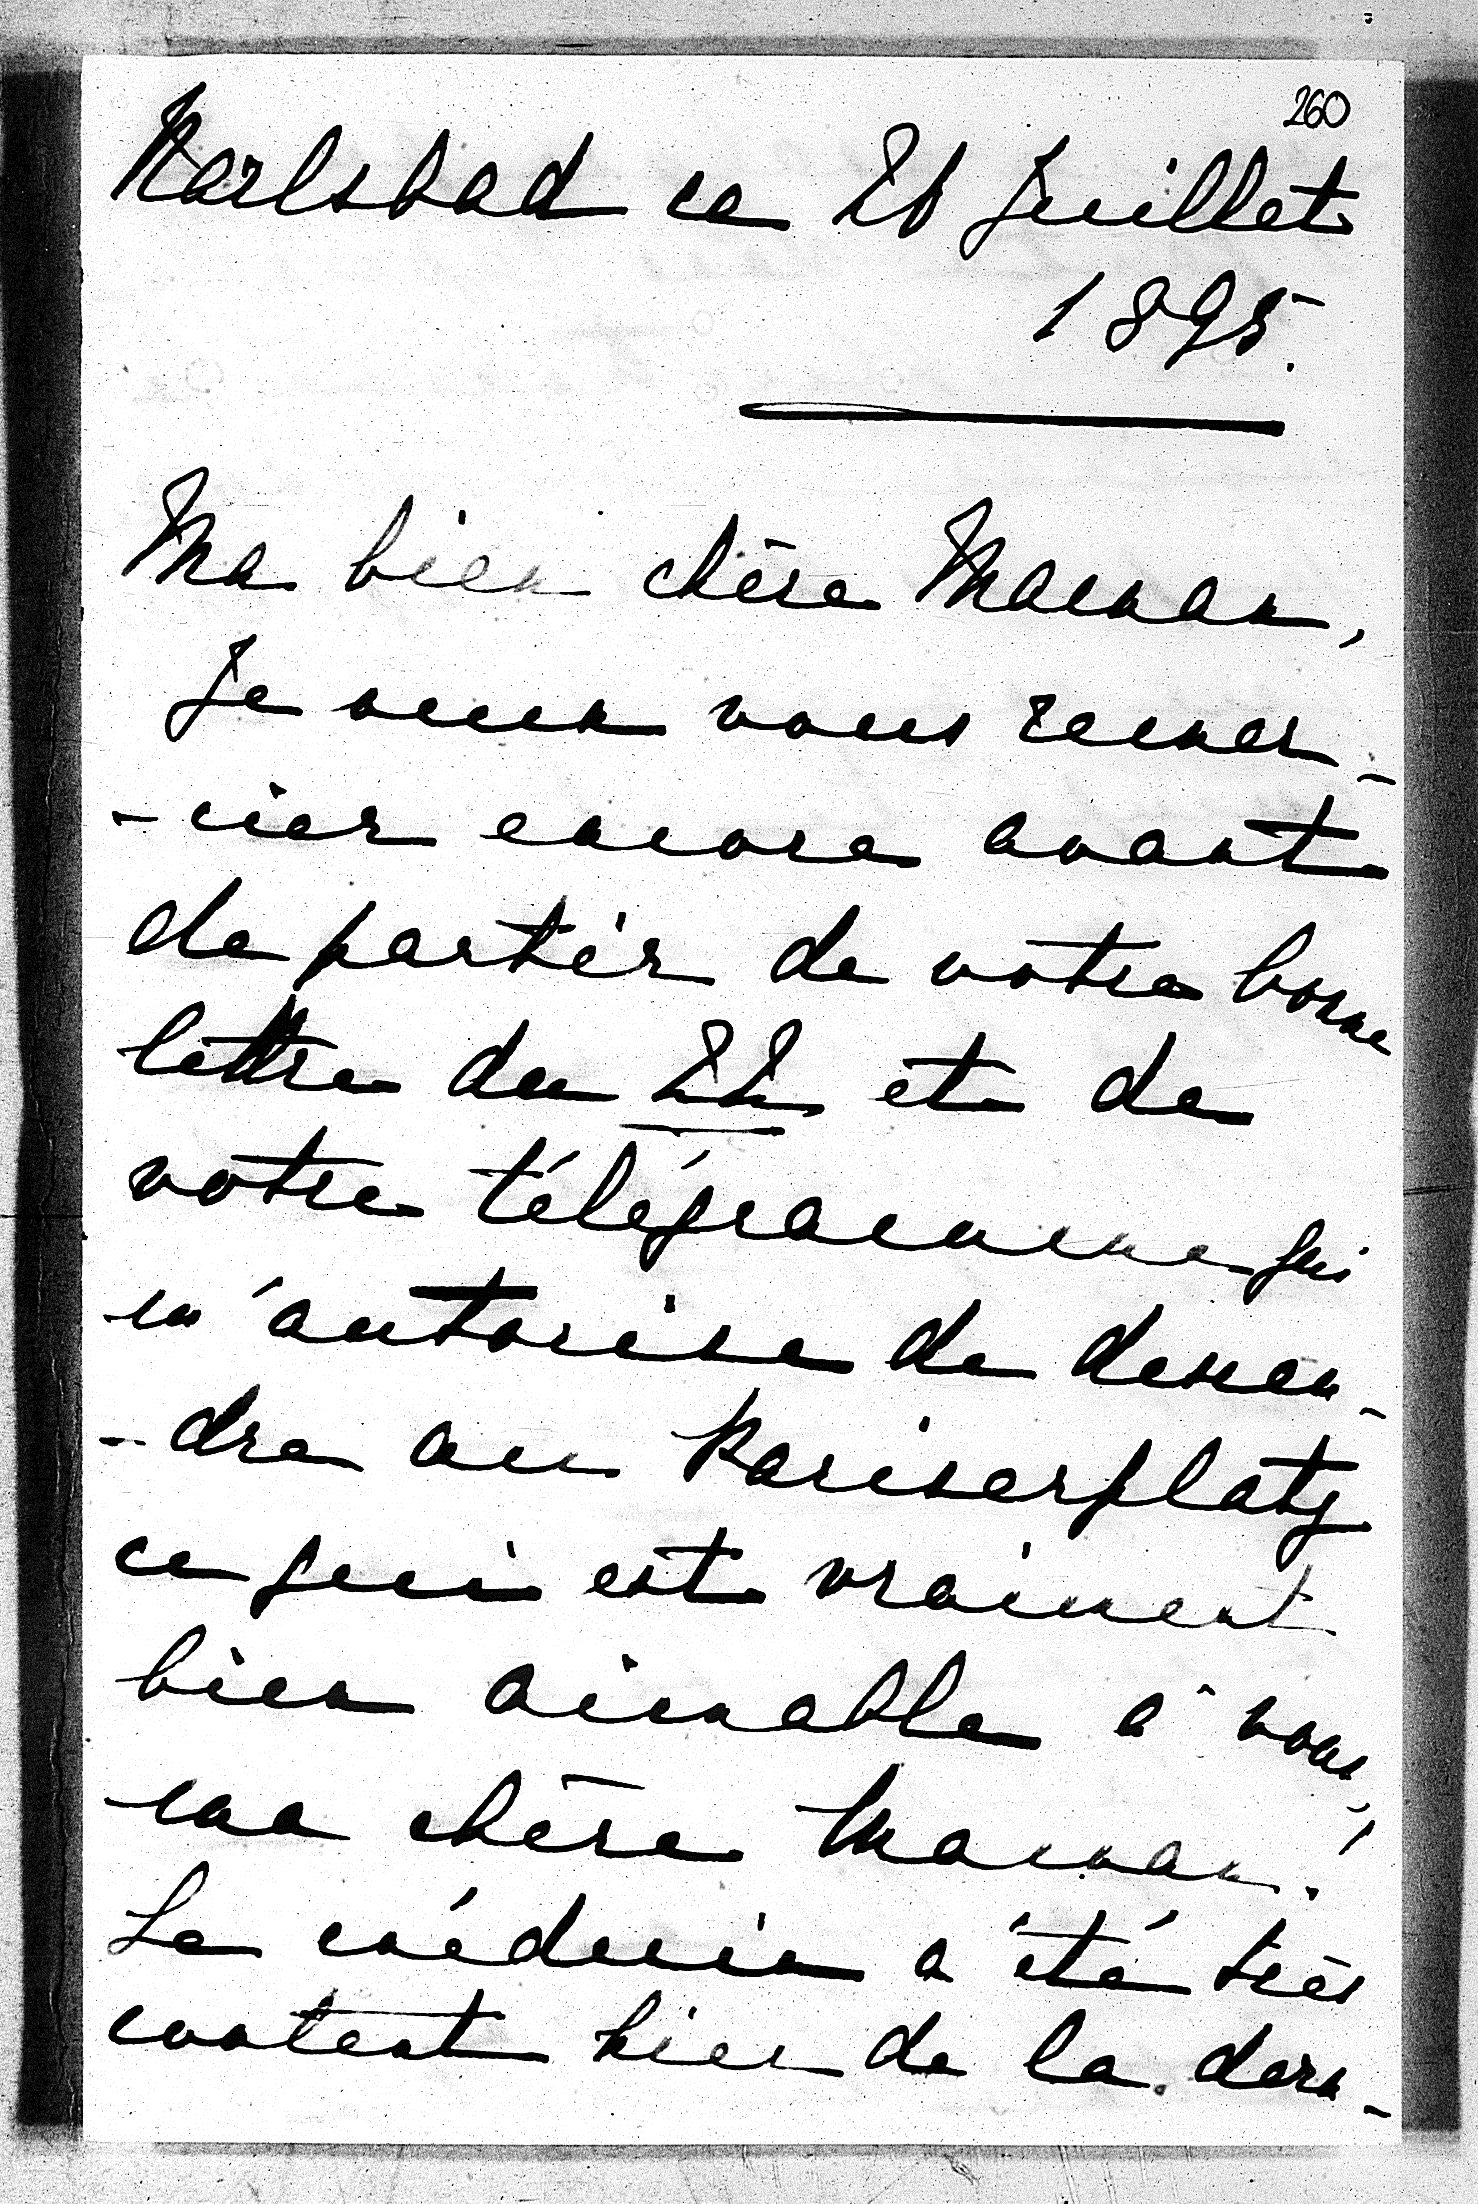 260
Karlsbad ce 26 Juillet
1895.
Ma bien chère Maman,
Je veux vous remer-
-cier encore avant
de partir de votre bonne
lettre du 22 et de
votre télégramme qui
m'autorise de descen-
-dre au Pariserplatz
ce qui est vraiment
bien aimable à vous,
ma chère Maman!
Le médecin a été très
content hier de la dern-